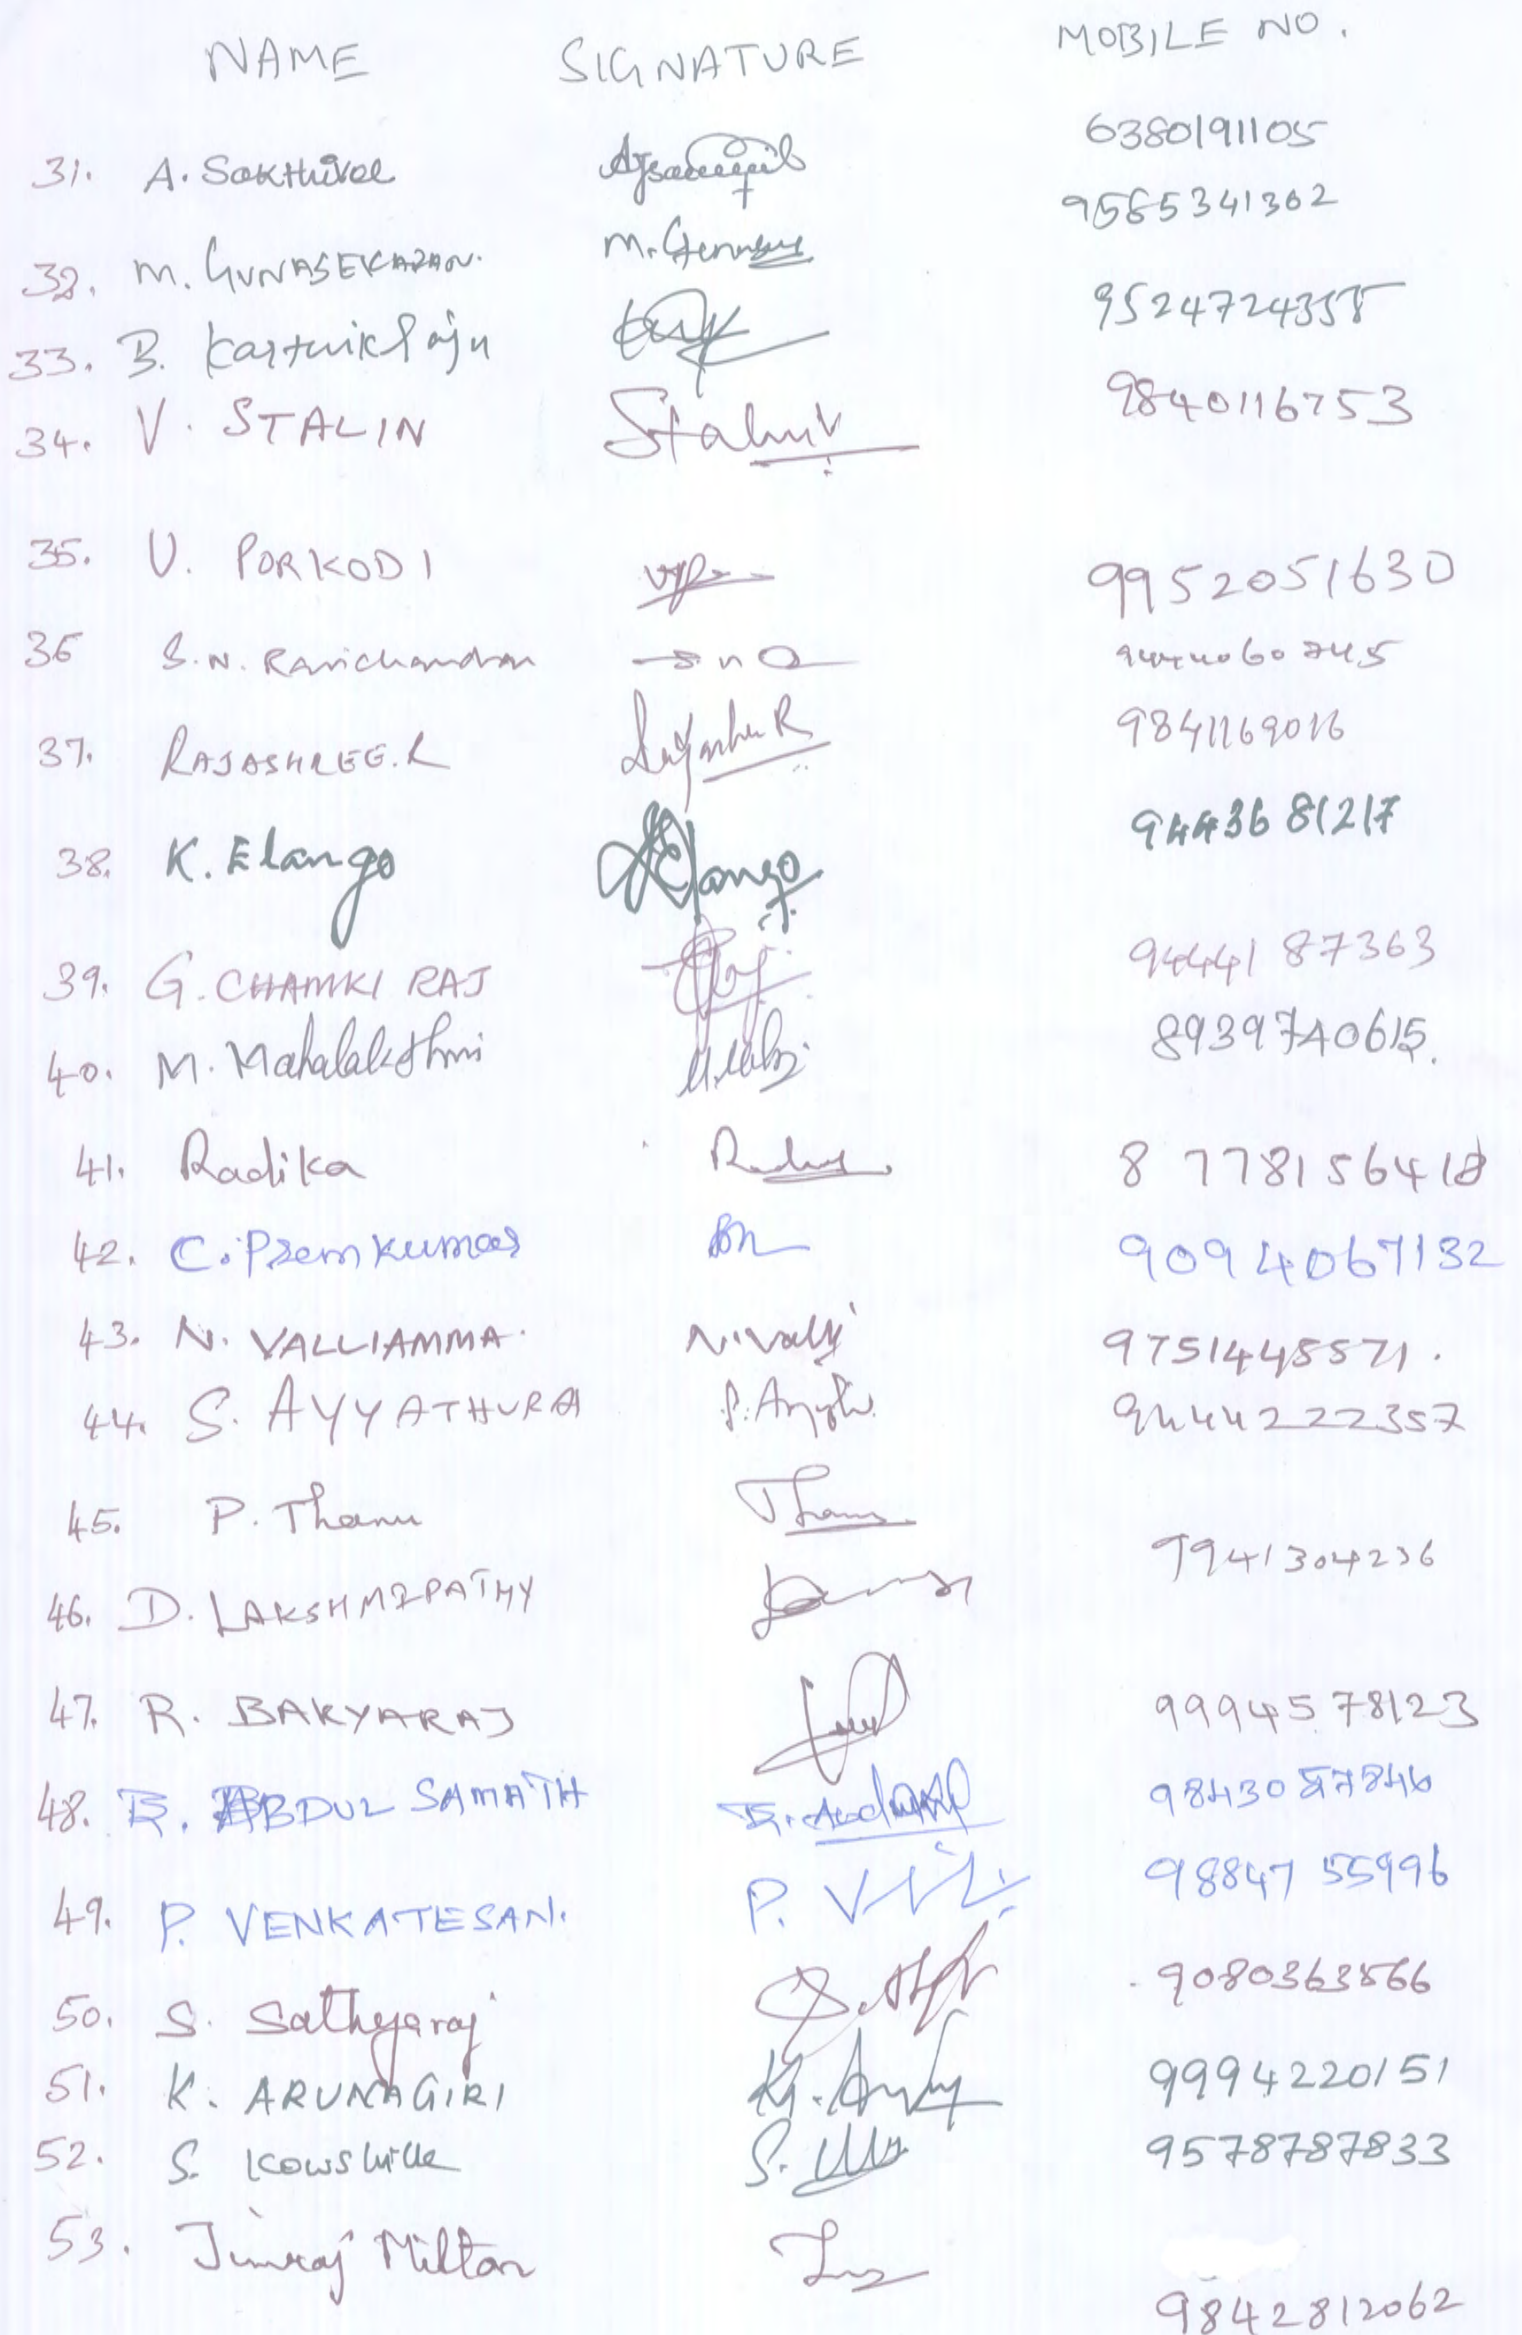 NAME SIGNATURE MOBILE NO.
31. A. Sakthivel 6380191105
32. M. GUNASEKARAN. M. 9565341302
33. B. Karthik Raju 9524724355
34. V. STALIN Stalin V 9840116753
35. V. PORKODI 9952051630
36 S.N. Ravichandran 9444060745
37. RAJASHREE.R 9841169016
38. K. Elango Elango 9443681217
39. G. CHAMKI RAJ 9444187363
40. M. Mahalakshmi 8939740615.
41. Radika 8 778156418
42. C. Premkumar 9094067132
43. N. VALLIAMMA. N. Valli 9751445571.
44. S. AYYATHURAI 9444222357
45. P. Thanu Thanu
46. D. LAKSHMIPATHY 9941304236
47. R. BAKYARAJ 9994578123
48. B. ABDUL SAMATH 9843087846
49. P. VENKATESAN. P. 98847 55996
50. S. Sathyaraj 9080363566
51. K. ARUNAGIRI 9994220151
52. S. 9578787833
53. Jimraj Milton 9842812062